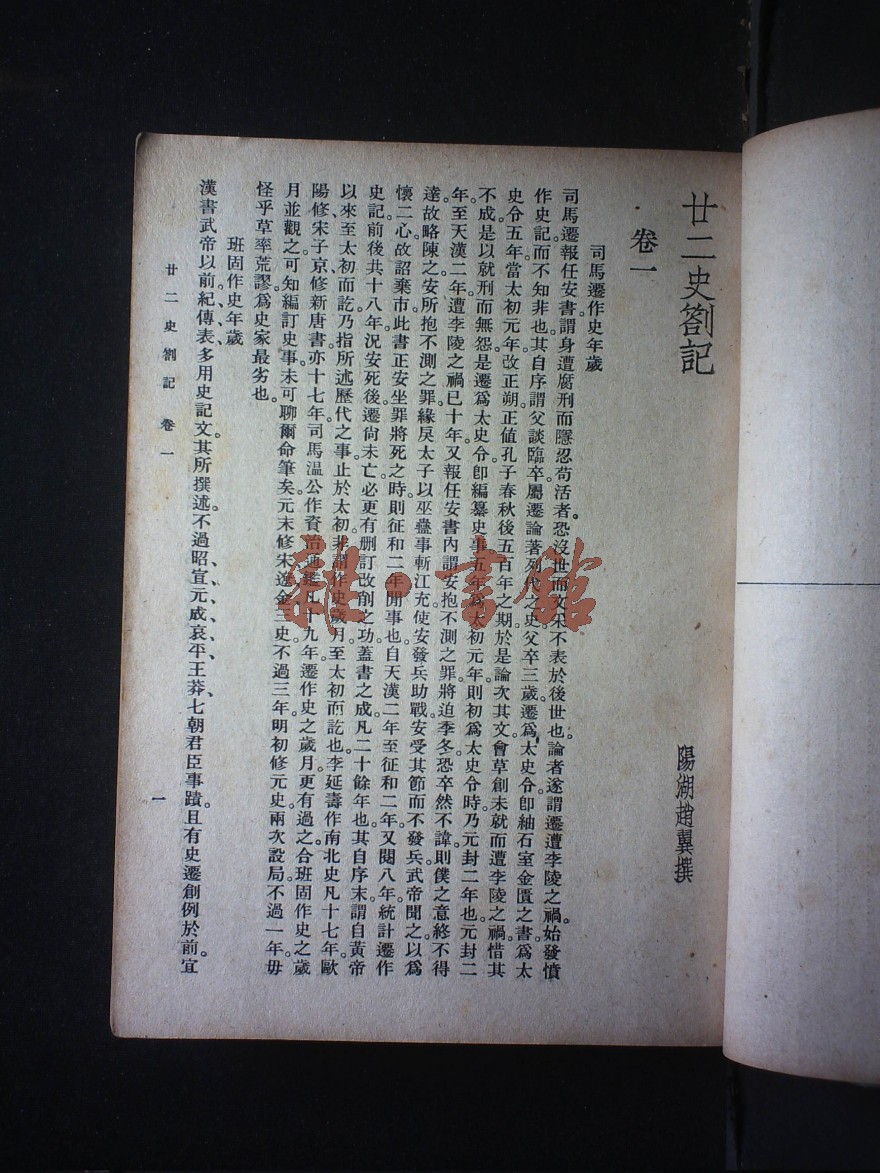 廿二史劄記
陽湖趙翼撰
卷一
司馬遷作史年歲
司馬遷報任安書。謂身遭腐刑而隱忍苟活者。恐沒世而文采不表於後世也。論者遂謂遷遭李陵之禍。始發憤
作史記。而不知非也。其自序謂父談臨卒。屬遷論著列代之史。父卒三歲。遷為太史令。卽紬石室金匱之書。為太
史令五年。當太初元年。改正朔。正值孔子春秋後五百年之期。於是論次其文。會草創未就。而遭李陵之禍。惜其
不成。是以就刑而無怨。是遷為太史令。卽編纂史事。五年為太初元年。則初為太史令時。乃元封二年也。元封二
年。至天漢二年。遭李陵之禍。已十年。又報任安書內。謂安抱不測之罪。將迫季冬。恐卒然不諱。則僕之意終不得
達。故略陳之。安所抱不測之罪。緣戾太子以巫蠱事斬江充。使安發兵助戰。安受其節而不發兵。武帝聞之。以為
懷二心。故詔棄市。此書正安坐罪將死之時。則征和二年間事也。自天漢二年至征和二年。又閱八年。統計遷作
史記。前後共十八年。況安死後。遷尙未亡。必更有刪訂改削之功。蓋書之成。凡二十餘年也。其自序末。謂自黃帝
以來至太初而訖。乃指所述歷代之事。止於太初。非謂作史歲月。至太初而訖也。李延壽作南北史。凡十七年。歐
陽修、宋子京、修新唐書。亦十七年。司馬溫公作資治通鑑。凡十九年。遷作史之歲月。更有過之。合班固作史之歲
月並觀之。可知編訂史事。未可聊爾命筆矣。元末修宋遼金三史。不過三年。明初修元史。兩次設局。不過一年。毋
怪乎草率荒謬。為史家最劣也。
班固作史年歲
漢書武帝以前。紀、傳、表、多用史記文。其所撰述。不過昭、宣、元、成、哀、平、王莽、七朝君臣事蹟。且有史遷創例於前。宜
廿二史劄記 卷一
一
雜·書館